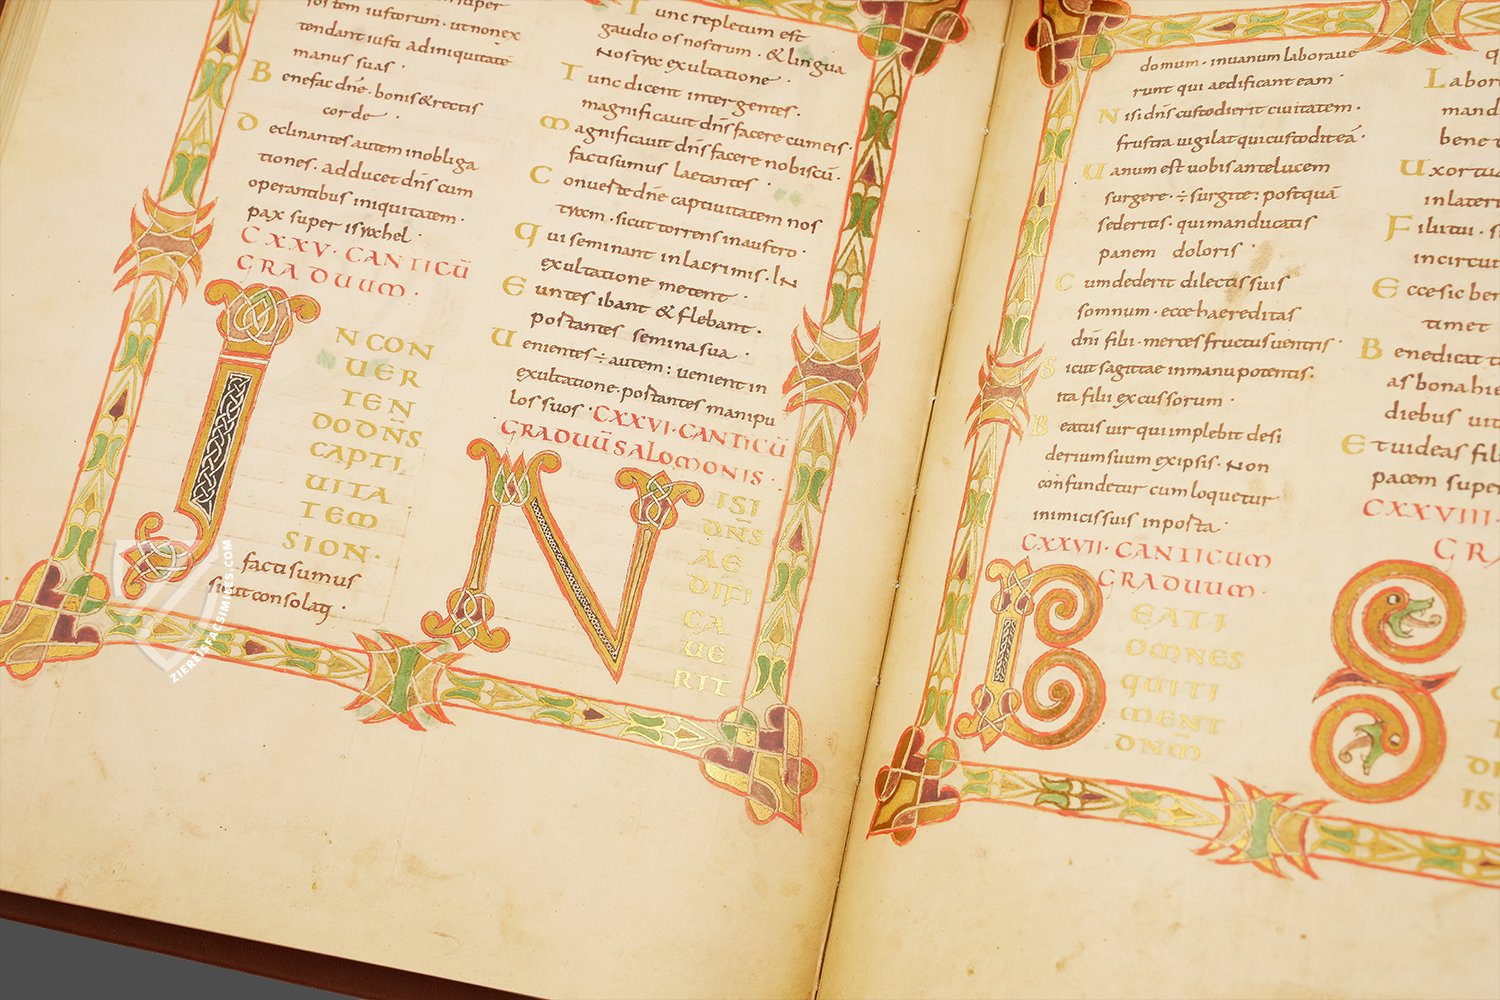 super
sortem iustorum · ut non ex
tendant iusti ad iniquitate
manus suas ·
Benefac dñe · bonis & rectis
corde ·
Declinantes autem in obliga
tiones · adducet dñs cum
operantibus iniquitatem ·
pax super israhel ·
CXXV · CANTICŪ
GRADUUM ·
IN CON
UER
TEN
DO DÑS
CAPTI
UITA
TEM
SION ·
facti sumus
sicut consolati ·
Tunc repletum est
gaudio os nostrum · & lingua
Nostra exultatione ·
Tunc dicent inter gentes ·
magnificauit dñs facere cum eis ·
Magnificauit dñs facere nobiscū ·
facti sumus laetantes ·
Conuerte dñe captiuitatem nos
tram · sicut torrens in austro ·
Qui seminant in lacrimis · IN
exultatione metent ·
Euntes ibant & flebant ·
portantes semina sua ·
Uenientes ÷ autem : uenient in
exultatione · portantes manipu
los suos · CXXVI · CANTICŪ
GRADUŪ SALOMONIS ·
NISI
DÑS
AE
DIFI
CA
UE
RIT
domum · in uanum laboraue
runt qui aedificant eam ·
Nisi dñs custodierit ciuitatem ·
frustra uigilat qui custodit eā ·
Uanum est uobis ante lucem
surgere · ÷ surgite : postquā
sederitis · qui manducatis
panem doloris ·
Cum dederit dilectis suis
somnum · ecce haereditas
dñi filii · merces fructus uentris ·
Sicut sagittae in manu potentis ·
ita filii excussorum ·
Beatus uir qui implebit desi
derium suum ex ipsis · Non
confundetur cum loquetur
inimicis suis in porta ·
CXXVII · CANTICUM
GRADUUM ·
BEATI
OMNES
QUI TI
MENT
DNM̄
q
Labor
mand
bene t
Uxor tu
in later
Filii tui · s
in circui
Ecce sic ben
timet
Benedicat t
as bona hie
diebus uit
Et uideas fil
pacem super
CXXVIII ·
GRA
S
DI
IS
ZIEREISFACSIMILES.COM